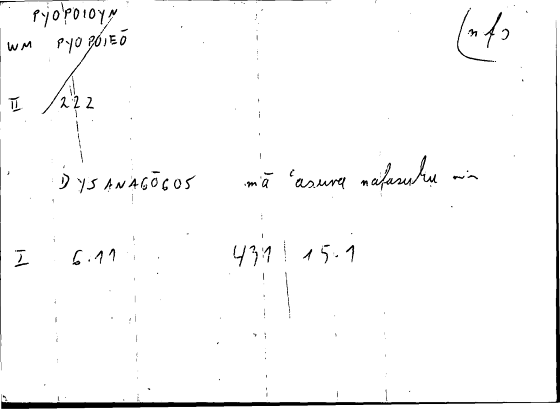 PYOPOIOYN
(nfs
WM PYOPOIEŌ
II 222
DYSANAGŌGOS mā ʿasura nafasuhu
I 6.11 431 | 15.1